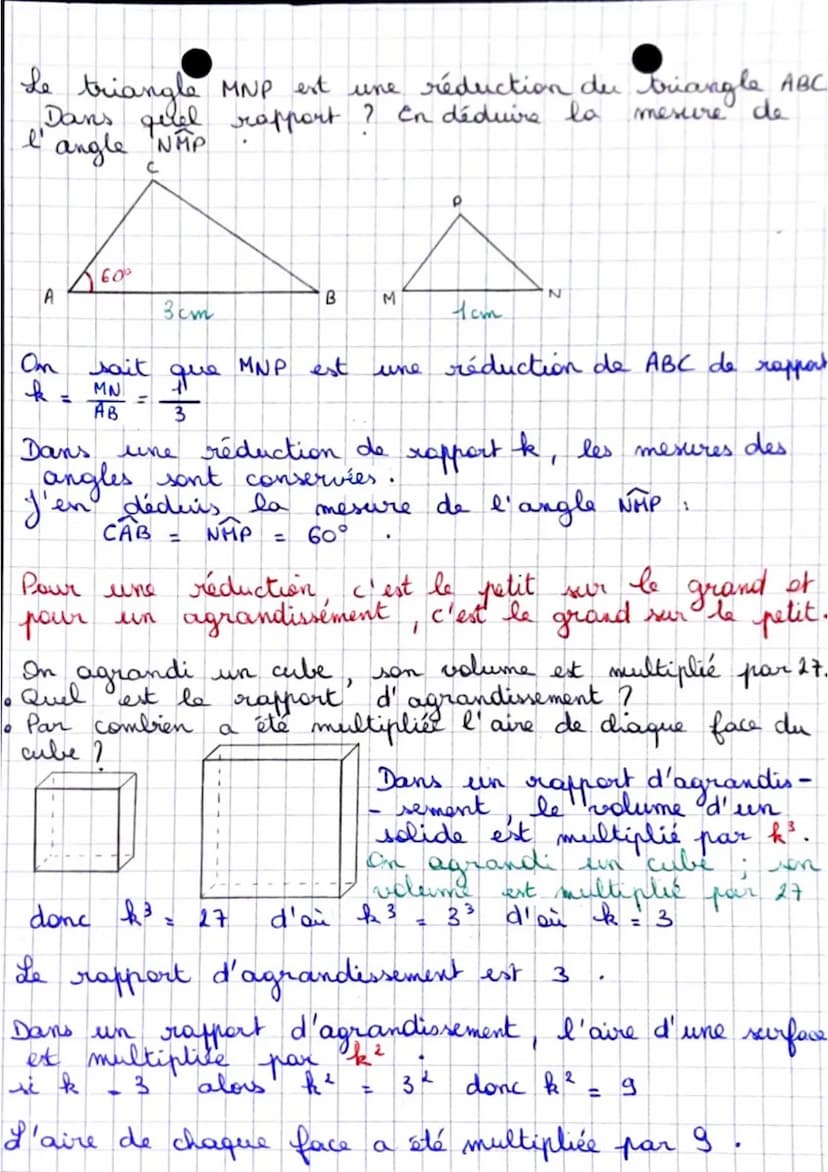 Le triangle MNP est une réduction du triangle ABC
Dans quel rapport ? En déduire la mesure de
l'angle N̂MP .
C
60°
A
B
3cm
P
M
N
1cm
On sait que MNP est une réduction de ABC de rapport
k = MN/AB = 1/3
Dans une réduction de rapport k, les mesures des
angles sont conservées.
J'en déduis la mesure de l'angle N̂MP :
ĈAB = N̂MP = 60° .
Pour une réduction, c'est le petit sur le grand et
pour un agrandissement, c'est le grand sur le petit.
On agrandi un cube, son volume est multiplié par 27.
• Quel est le rapport d'agrandissement ?
• Par combien a été multipliée l'aire de chaque face du
cube ?
Dans un rapport d'agrandis-
- sement, le volume d'un
solide est multiplié par k³.
On agrandi un cube ; son
volume est multiplié par 27
donc k³ = 27 d'où k³ = 3³ d'où k = 3
Le rapport d'agrandissement est 3 .
Dans un rapport d'agrandissement, l'aire d'une surface
est multipliée par k² .
si k = 3 alors k² = 3² donc k² = 9
L'aire de chaque face a été multipliée par 9 .